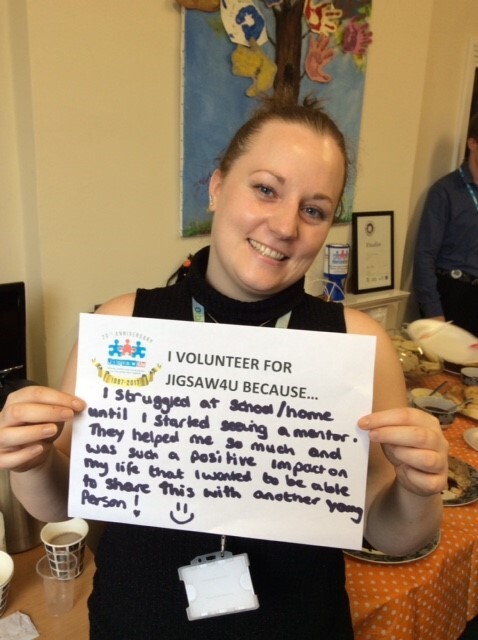 20TH ANNIVERSARY
1997-2017
I VOLUNTEER FOR
JIGSAW4U BECAUSE...
I struggled at school/home
until I started seeing a mentor.
They helped me so much and
was such a positive impact on
my life that I wanted to be able
to share this with another young
Person! :)